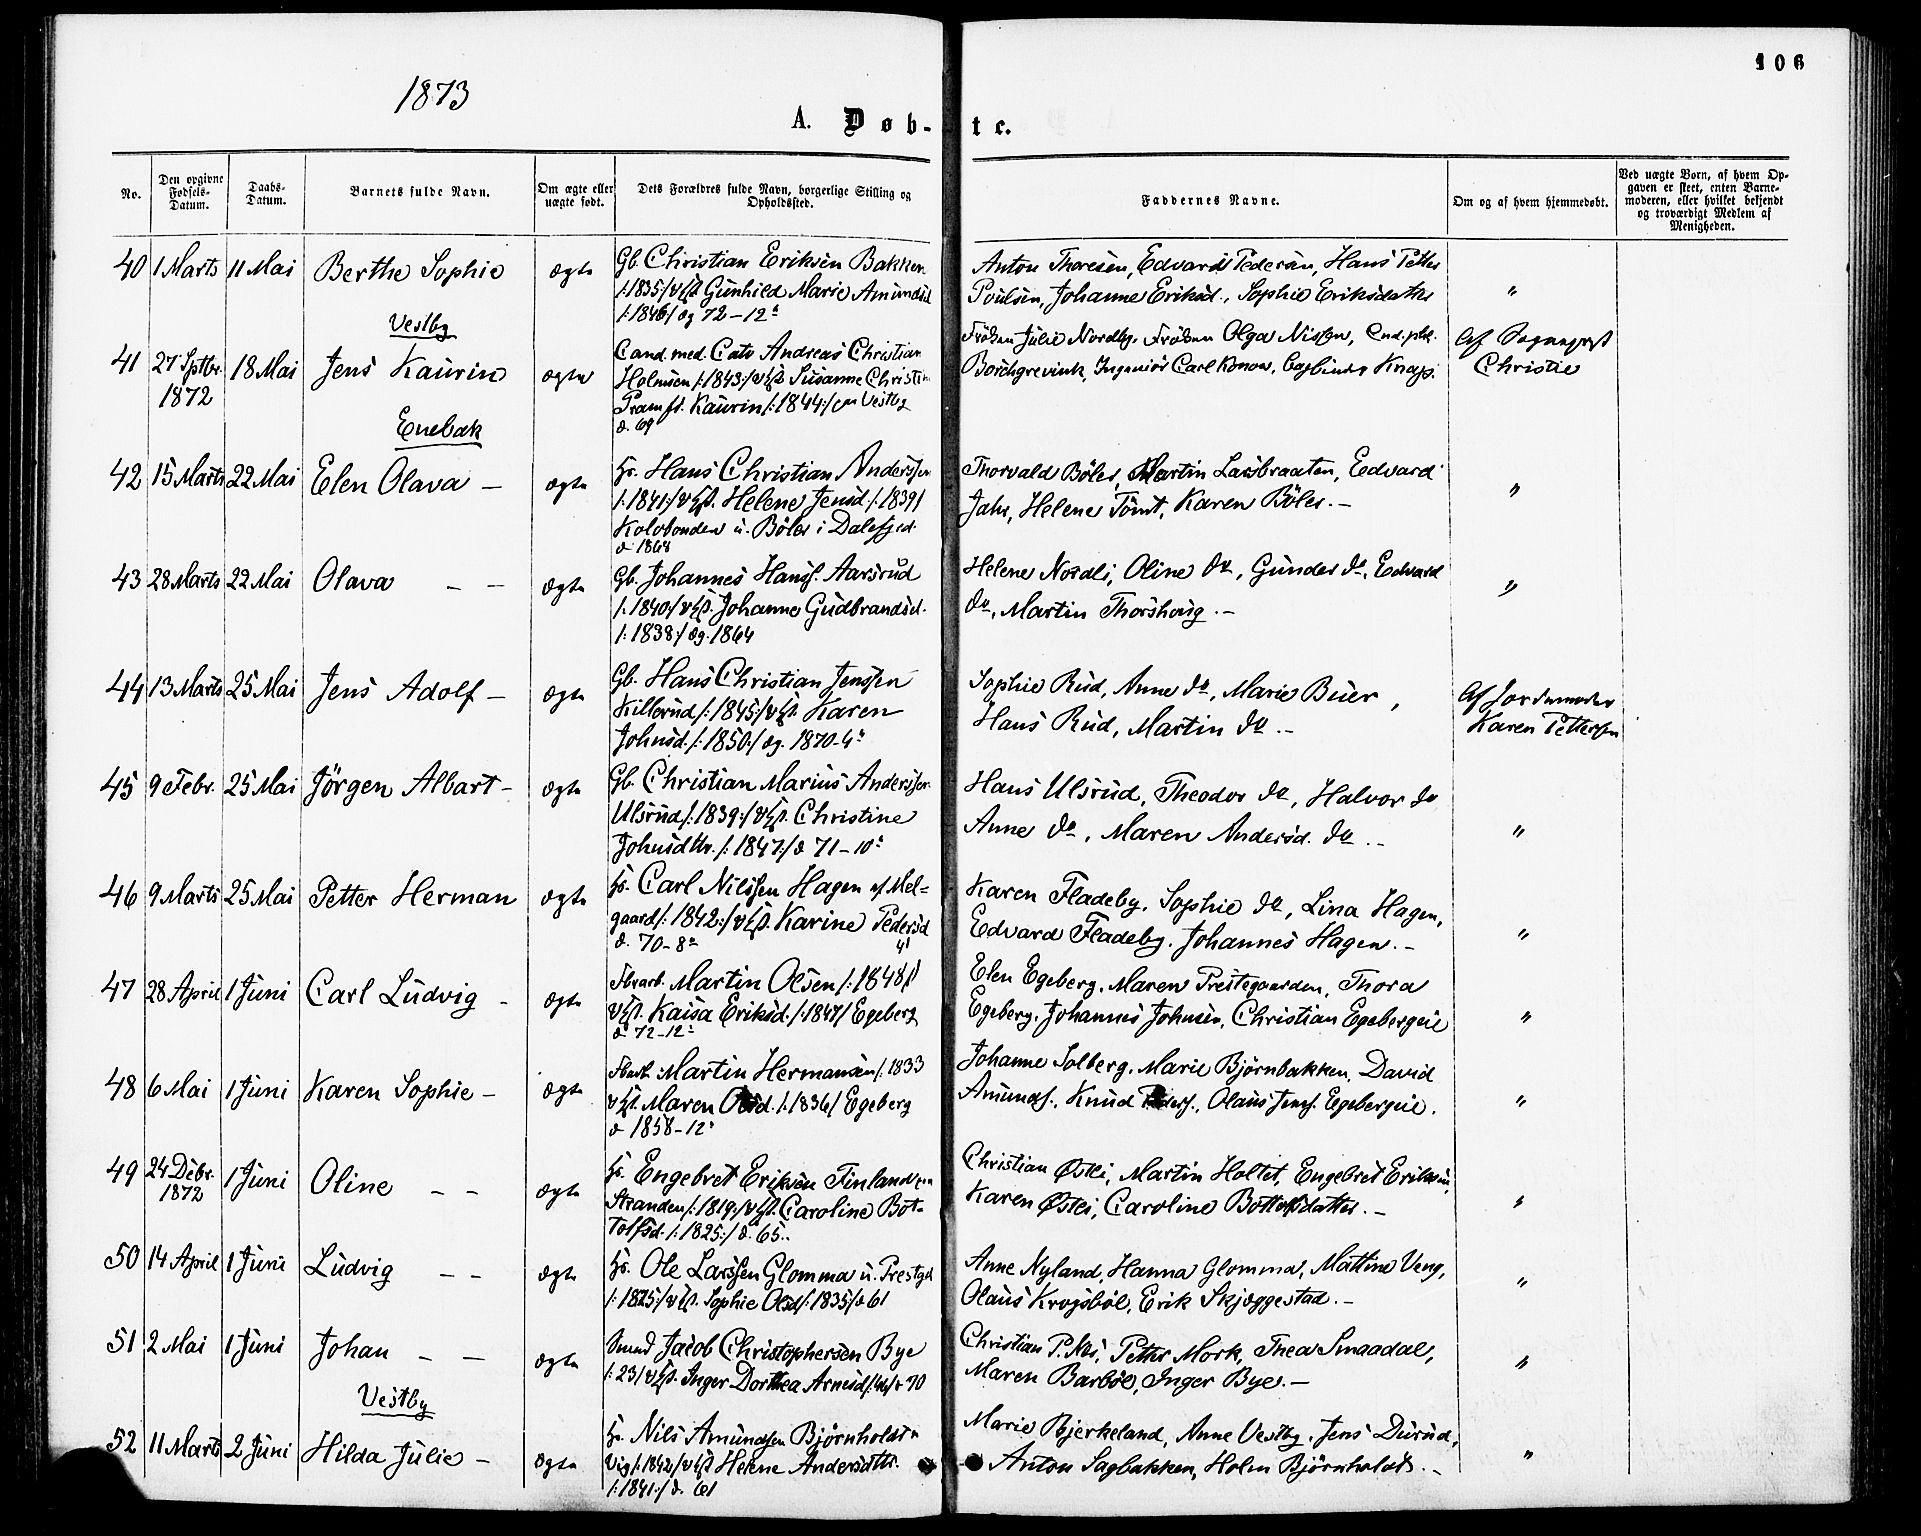 106
1873
A. Døb-te.
No.
Den opgivne Fødsels-Datum.
Daabs-Datum.
Barnets fulde Navn.
Om ægte eller uægte født.
Dets Forældres fulde Navn, borgerlige Stilling og Opholdssted.
Faddernes Navne.
Om og af hvem hjemmedøbt.
Ved uægte Børn, af hvem Opgaven er skeet, enten Barnemoderen, eller hvilket bekjendt og troværdigt Medlem af Menigheden.
40 1 Marts 11 Mai Berthe Sophie ægte
Gb. Christian Eriksen Bakken
/:1835:/ Gunhild Marie Amundsd
/:1846/ æg 72-12
Anton Thoresen, Edvard Pedersen, Hans Petter
Poulsen, Johanne Eriksd., Sophie Eriksdatter
"
Vestby
41 27 Sptbr. 1872 18 Mai Jens Kaurin ægte
Cand. med. Cato Andreas Christian
Holmsen /:1843:/ Susanne Christine
Pram ft. Kaurin /:1844:/ Vestby
d. 69
Frøken Julie Nordby, Frøken Olga Nissen, Cnd. phl.
Borchgrevink, Ingeniør Carl Konow, Knap.
Af Sogneprest
Christie
Enebak
42 15 Marts 22 Mai Elen Olava - ægte
Hs. Hans Christian Anderssen
/:1841:/ Helene Jensd /:1839/
Kolobonden u. Böler i Dalefjed.
d 1868
Thorvald Böler, Martin Lasbraaten, Edvard
Jahr, Helene Tomt, Karen Böler. -
"
43 28 Marts 22 Mai Olava - - ægte
Gb. Johannes Hansf. Aarsrud
/:1840/ Johanne Gudbrandsd.
/:1838:/ æg. 1864
Helene Nordli, Oline do, Gunder do, Edvard
do, Martin Thorshoug. -
"
44 13 Marts 25 Mai Jens Adolf - ægte
Gb. Hans Christian Jenssen
Killerud /:1845:/ Karen
Johnsd. /:1850:/ æg. 1870-4
Sophie Rud, Anne do, Marie Buer,
Hans Rud, Martin do. -
Af Jordemoder
Karen Pettersen
45 9 Febr. 25 Mai Jörgen Albart - ægte
Gb. Christian Marius Anderssen
Ulsrud /:1839:/ Christine
Johnsdtr. /:1847:/ d 71-10
Hans Ulsrud, Theodor do, Halvor do
Anne do, Maren Andersd. do. -
"
46 9 Marts 25 Mai Petter Herman ægte
Hs. Carl Nilssen Hagen u/ Mel=
gaard /:1842:/ Karine Pedersd
d. 70-8 41
Karen Fladeby, Sophie do, Lina Hagen,
Edvard Fladeby, Johannes Hagen. -
"
47 28 April 1 Juni Carl Ludvig - ægte
Martin Olsen /:1848/
Kaisa Eriksd. /:1847/ Egeberg
d 72-12
Elen Egeberg, Maren Prestegaarden, Thora
Egeberg, Johannes Johnsen, Christian Egebergeie
"
48 6 Mai 1 Juni Karen Sophie - ægte
Martin Hermansen /:1833
Maren Olsd. /:1836/ Egeberg
d 1858-12
Johanne Solberg, Marie Bjørnbakken, David
Amundf., Knud Pedersf., Olaus Jensf. Egebergeie.
"
49 24 Debr. 1872 1 Juni Oline - - ægte
Hs. Engebret Eriksen Finland
Stranden /:1819:/ Caroline Bot=
tolfsd. /:1825:/ d. 65..
Christian Østli, Martin Holtet, Engebret Eriksen,
Karen Østli, Caroline Bottolfsdatter. -
"
50 14 April 1 Juni Ludvig - - ægte
Hs. Ole Larssen Glomma u. Prestgd
/:1825/ Sophie Olsd /:1835/ d 61
Anne Nyland, Hanna Glomma, Mattine Veng,
Olaus Krogsböl, Erik Skjæggestad. -
"
51 2 Mai 1 Juni Johan - - ægte
Smed Jacob Christophersen Bye
/:23/ Inger Dorthea Arnesd 70
Christian P. Næs, Petter Mork, Thea Smaadal,
Maren Barböl, Inger Bye. -
"
Vestby
52 11 Marts 2 Juni Hilda Julie - ægte
Hs. Nils Amundsen Bjørnholdt
Vig /:1842/ Helene Andersdttr.
/:1841:/ d. 61
Marie Bjerkeland, Anne Vestby, Jens Durud,
Anton Sagbakken, Holm Bjørnholdt. -
"